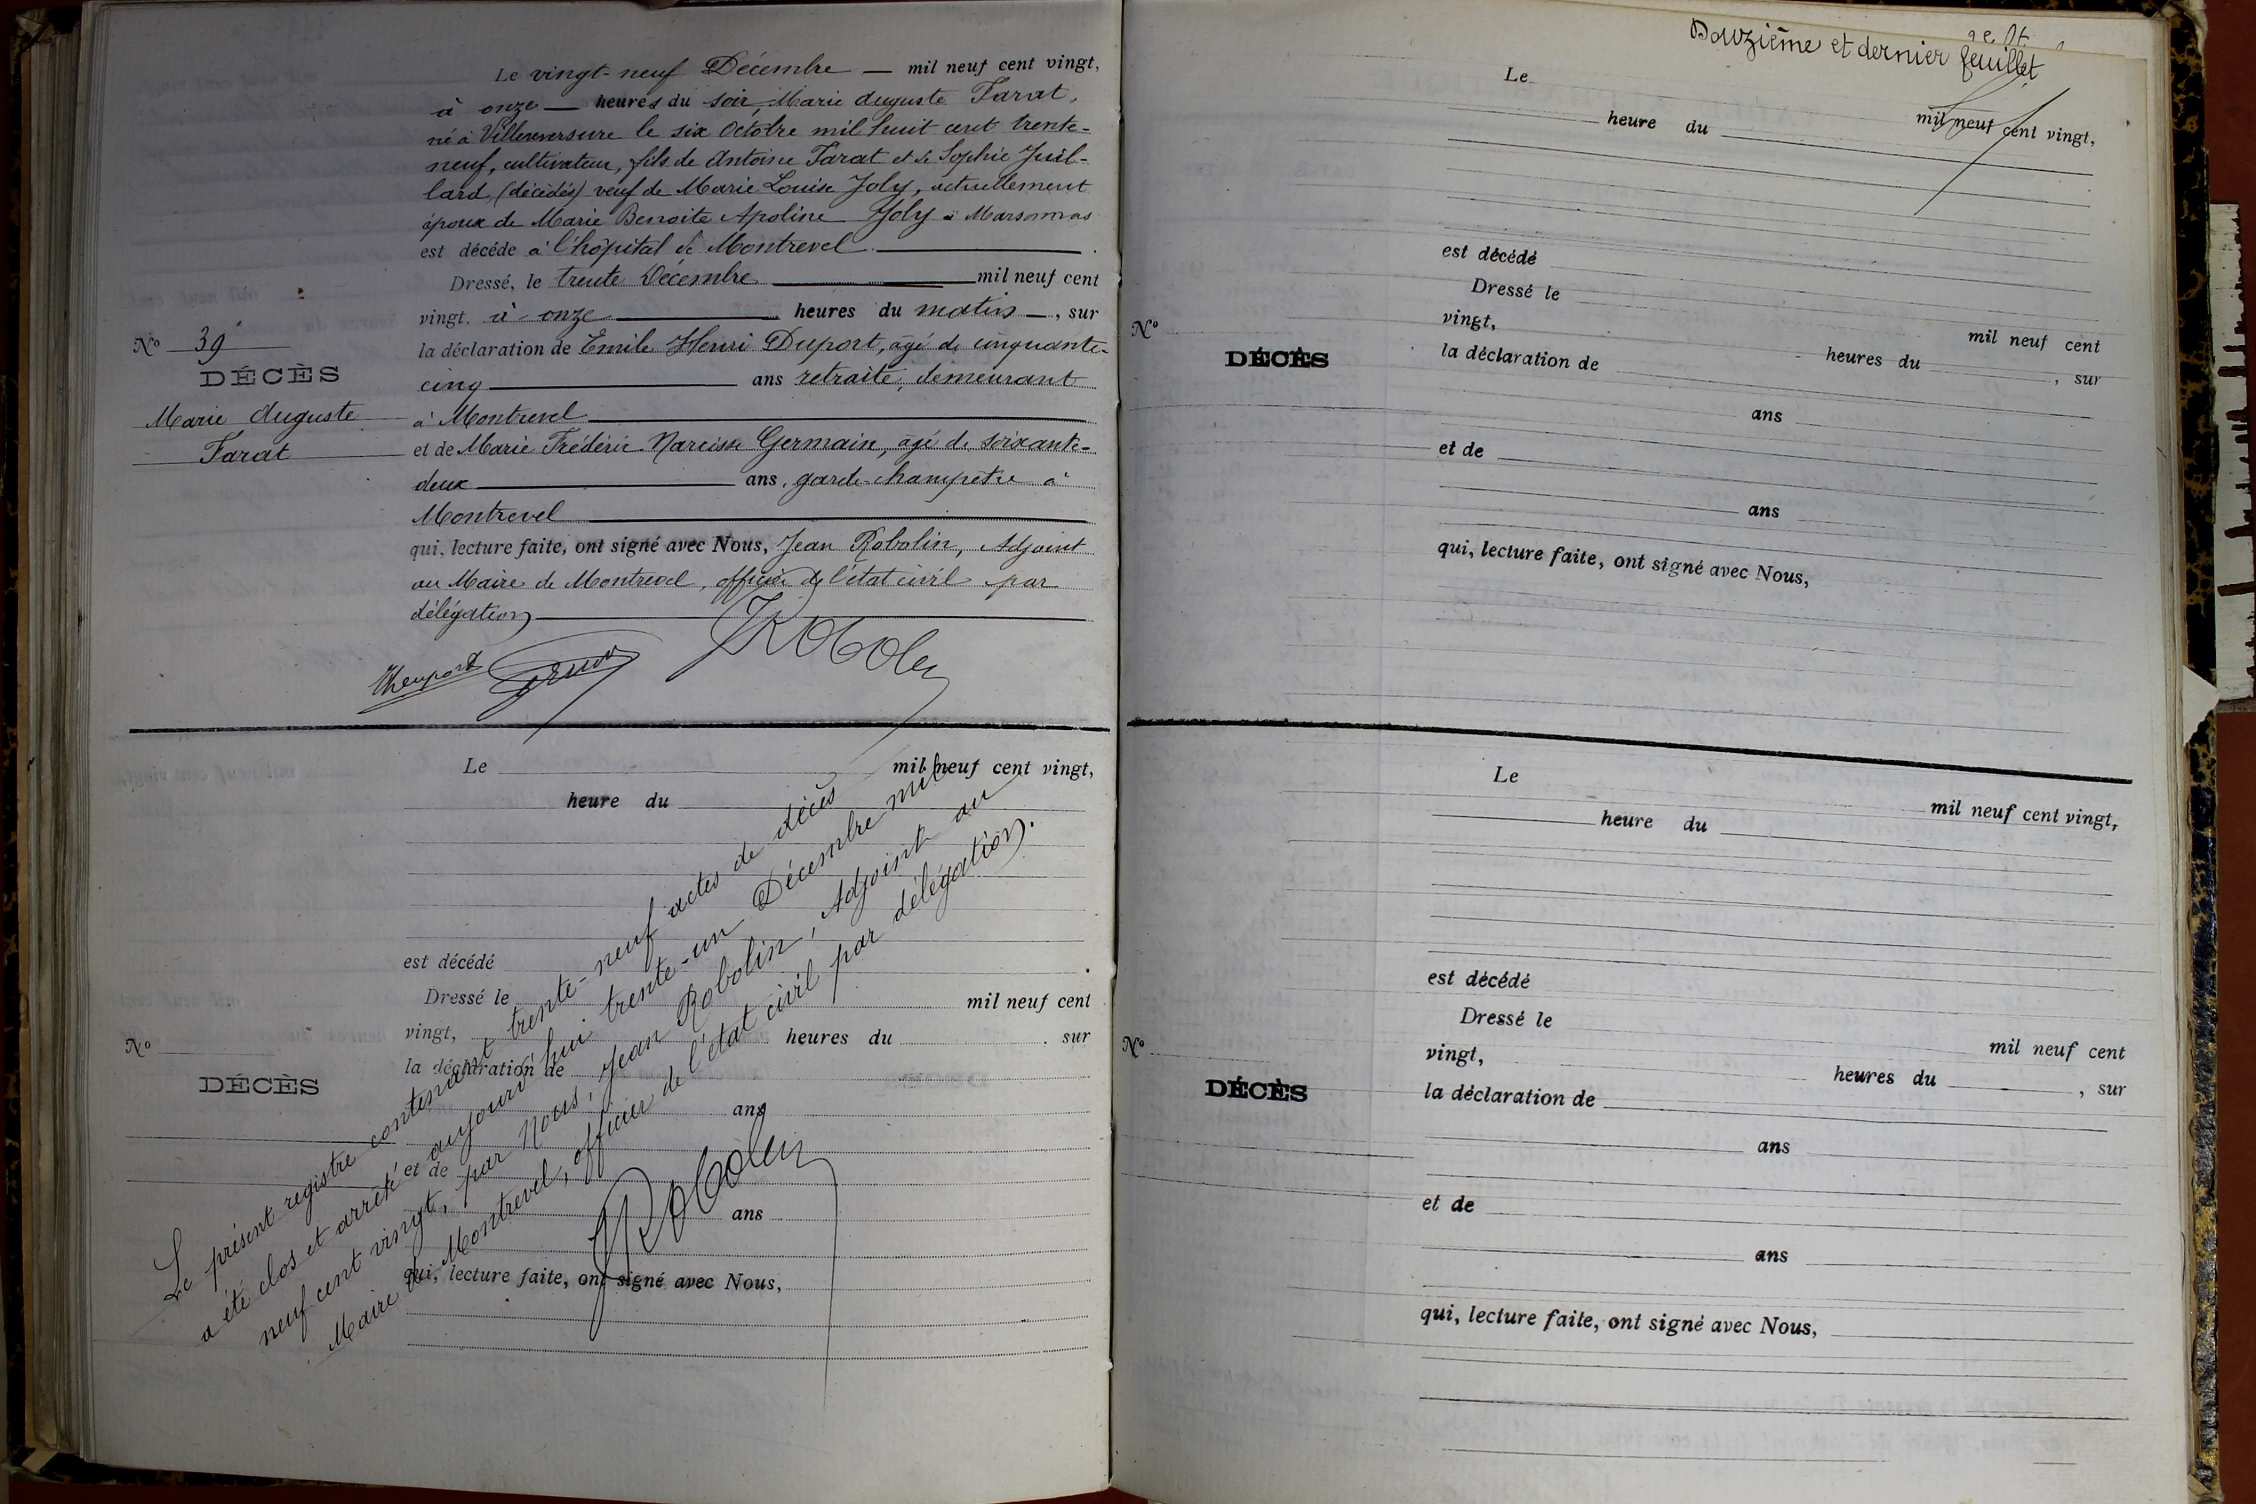 Le vingt-neuf Décembre — mil neuf cent vingt,
à onze — heures du soir, Marie Auguste Farat,
né à Villereversure le six Octobre mil huit cent trente-
neuf, cultivateur, fils de Antoine Farat et de Sophie Juil-
lard, (décédés) veuf de Marie Louise Joly, actuellement
époux de Marie Benoite Apoline Joly à Marsonnas
est décédé à l'hôpital de Montrevel
Dressé, le trente Décembre mil neuf cent
vingt, à onze heures du matin —, sur
la déclaration de Emile Henri Duport, agé de cinquante-
cinq ans retraité, demeurant
à Montrevel
et de Marie Frédéric Narcisse Germain, agé de soixante-
deux ans, garde-champêtre à
Montrevel
qui, lecture faite, ont signé avec Nous, Jean Robolin, Adjoint
au Maire de Montrevel, officier de l'état civil par
délégation
JRobolin
No 39
DÉCÈS
Marie Auguste
Farat
Le mil neuf cent vingt,
heure du
est décédé
Dressé le mil neuf cent
vingt, heures du , sur
la déclaration de
ans
et de
ans
qui, lecture faite, ont signé avec Nous,
No
DÉCÈS
Le présent registre contenant trente-neuf actes de décès
a été clos et arrêté aujourd'hui trente-un Décembre mil
neuf cent vingt, par Nous, Jean Robolin, Adjoint au
Maire de Montrevel, officier de l'état civil par délégation.
JRobolin
Douzième et dernier feuillet
Le mil neuf cent vingt,
heure du
est décédé
Dressé le mil neuf cent
vingt, heures du , sur
la déclaration de
ans
et de
ans
qui, lecture faite, ont signé avec Nous,
No
DÉCÈS
Le mil neuf cent vingt,
heure du
est décédé
Dressé le mil neuf cent
vingt, heures du , sur
la déclaration de
ans
et de
ans
qui, lecture faite, ont signé avec Nous,
No
DÉCÈS